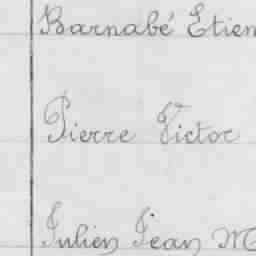 Barnabé Etien
Pierre Victor
Julien Jean M